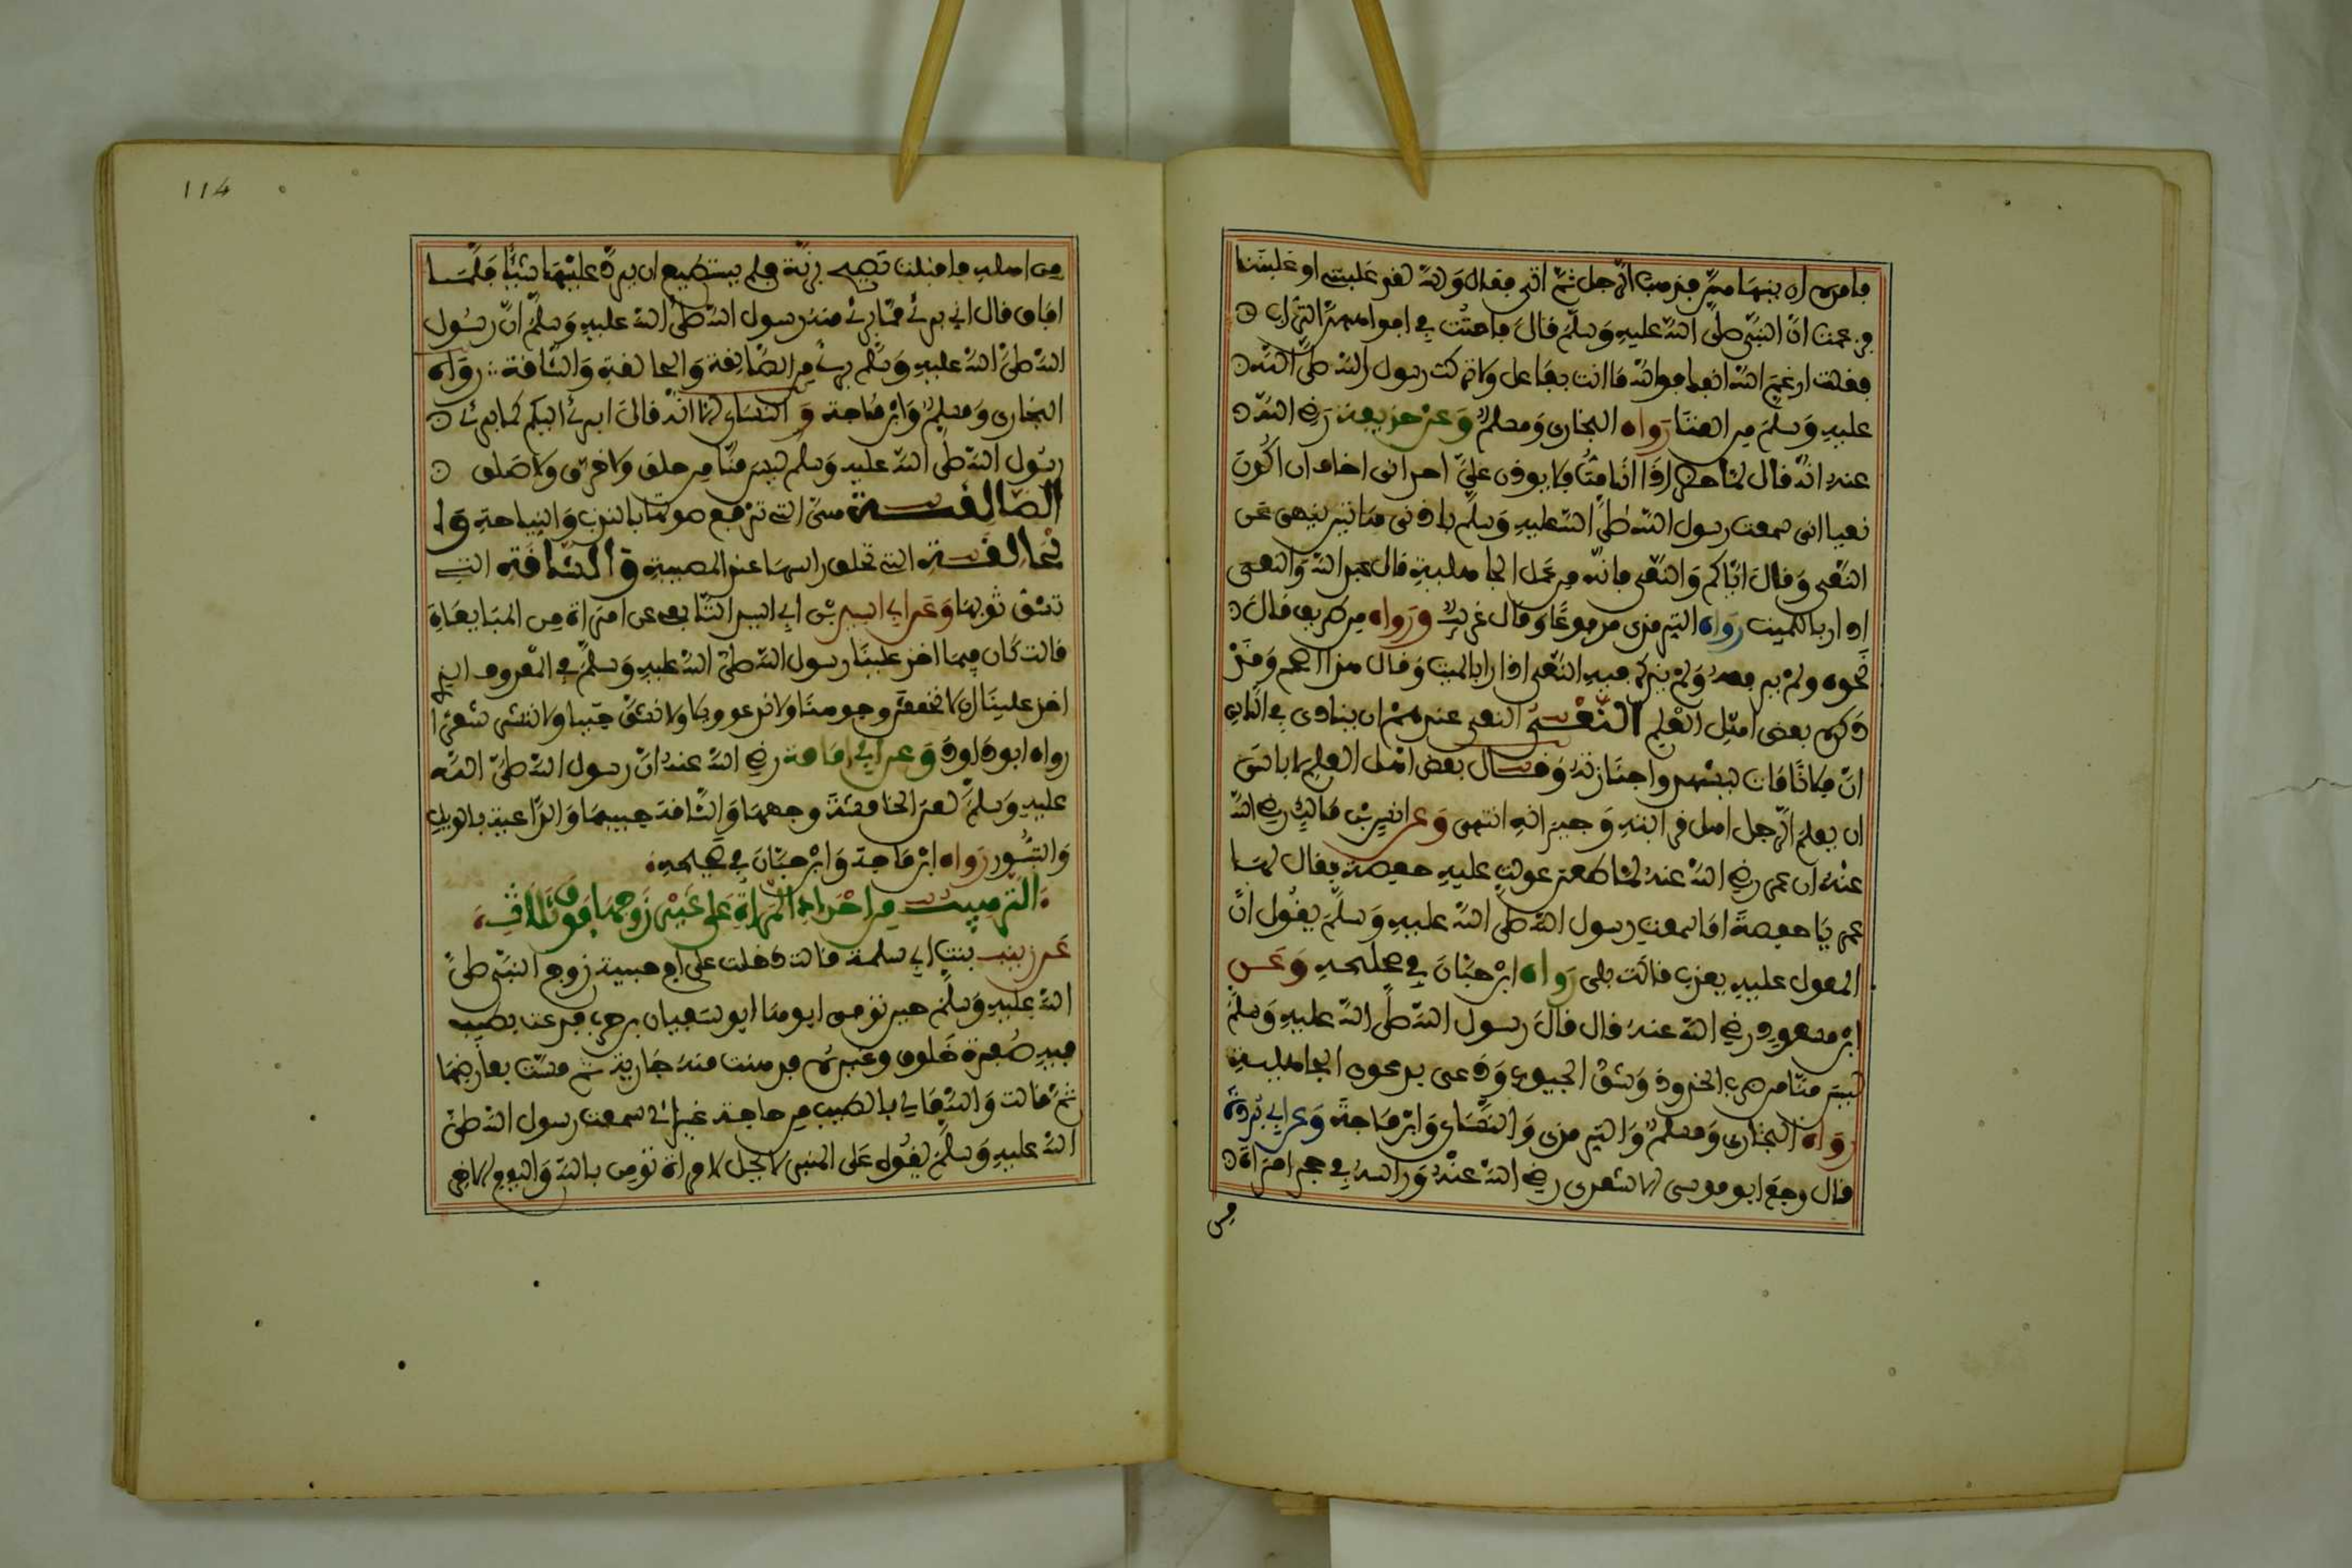 فامره ان ينهاهن فذهب الرجل ثم اتى فقال والله لقد غلبنني او غلبننا
فزعمت ان النبي صلى الله عليه وسلم قال فاحث في افواههن التراب
فقلت ارغم الله انفك فوالله ما انت بفاعل ولا تركت رسول الله صلى الله
عليه وسلم من العنا رواه البخاري ومسلم وعن حذيفة رضي الله
عنه انه قال لما حضر اذا انا مت فلا يوذن علي احد اني اخاف ان اكون
نعيا اني سمعت رسول الله صلى الله عليه وسلم باذني هاتين ينهى عن
النعي وقال اياكم والنعي فانه من عمل الجاهلية قال عبد الله والنعي
اذان بالميت رواه الترمذي مرفوعا وقال غريب ورواه من طريق قال
نحوه ولم يرفعه ولم يذكر فيه النعي اذان بالميت وقال هذا اصح وقد
ذكره بعض اهل العلم النعي النعي عندهم ان ينادى في الناس
ان فلانا مات ليشهدوا جنازته وقال بعض اهل العلم لا باس
ان يعلم الرجل اهل قرابته وجيرانه انتهى وعن انس بن مالك رضي الله
عنه ان عمر رضي الله عنه لما طعن عولت عليه حفصة فقال لها
عمر يا حفصة اما سمعت رسول الله صلى الله عليه وسلم يقول ان
المعول عليه يعذب قالت بلى رواه ابن حبان في صحيحه وعن
ابن مسعود رضي الله عنه قال قال رسول الله صلى الله عليه وسلم
ليس منا من ضرب الخدود وشق الجيوب ودعى بدعوى الجاهلية
رواه البخاري ومسلم والترمذي والنساي وابن ماجة وعن ابي بردة
قال وجع ابو موسى الاشعري رضي الله عنه وراسه في حجر امراة
من
114
من اهله فاقبلت تصيح برنة فلم يستطيع ان يرد عليها شيئا فلما
افاق قال اني بريء مما بريء منه رسول الله صلى الله عليه وسلم ان رسول
الله صلى الله عليه وسلم بريء من الصالقة والحالقة والشاقة رواه
البخاري ومسلم وابن ماجة والنساي الا انه قال ابرئ اليكم كما برئ
رسول الله صلى الله عليه وسلم ليس منا من حلق ولا خرق ولا صلق
الصالقة هي التي ترفع صوتها بالندب والنياحة وا
لحالقة التي تحلق راسها عند المصيبة والشاقة التي
تشق ثوبها وعن اسيد بن ابي اسيد التابعي عن امراة من المبايعات
قالت كان فيما اخذ علينا رسول الله صلى الله عليه وسلم في المعروف الذي
اخذ علينا ان لا نخمش وجوهنا ولا ندعو ويلا ولا نشق جيبا ولا ننشر شعرا
رواه ابو داود وعن ابي امامة رضي الله عنه ان رسول الله صلى الله
عليه وسلم لعن الخامشة وجهها والشاقة جيبها والداعية بالويل
والثبور رواه ابن ماجة وابن حبان في صحيحه
الترهيب من احداد المراة على غير زوجها فوق ثلاث
عن زينب بنت ابي سلمة قالت دخلت على ام حبيبة زوج النبي صلى
الله عليه وسلم حين توفي ابوها ابو سفيان بن حرب فدعت بطيب
فيه صفرة خلوق وغيره فدهنت منه جارية ثم مست بعارضها
ثم قالت والله ما لي بالطيب من حاجة غير اني سمعت رسول الله صلى
الله عليه وسلم يقول على المنبر لا يحل لامراة تومن بالله واليوم الاخر